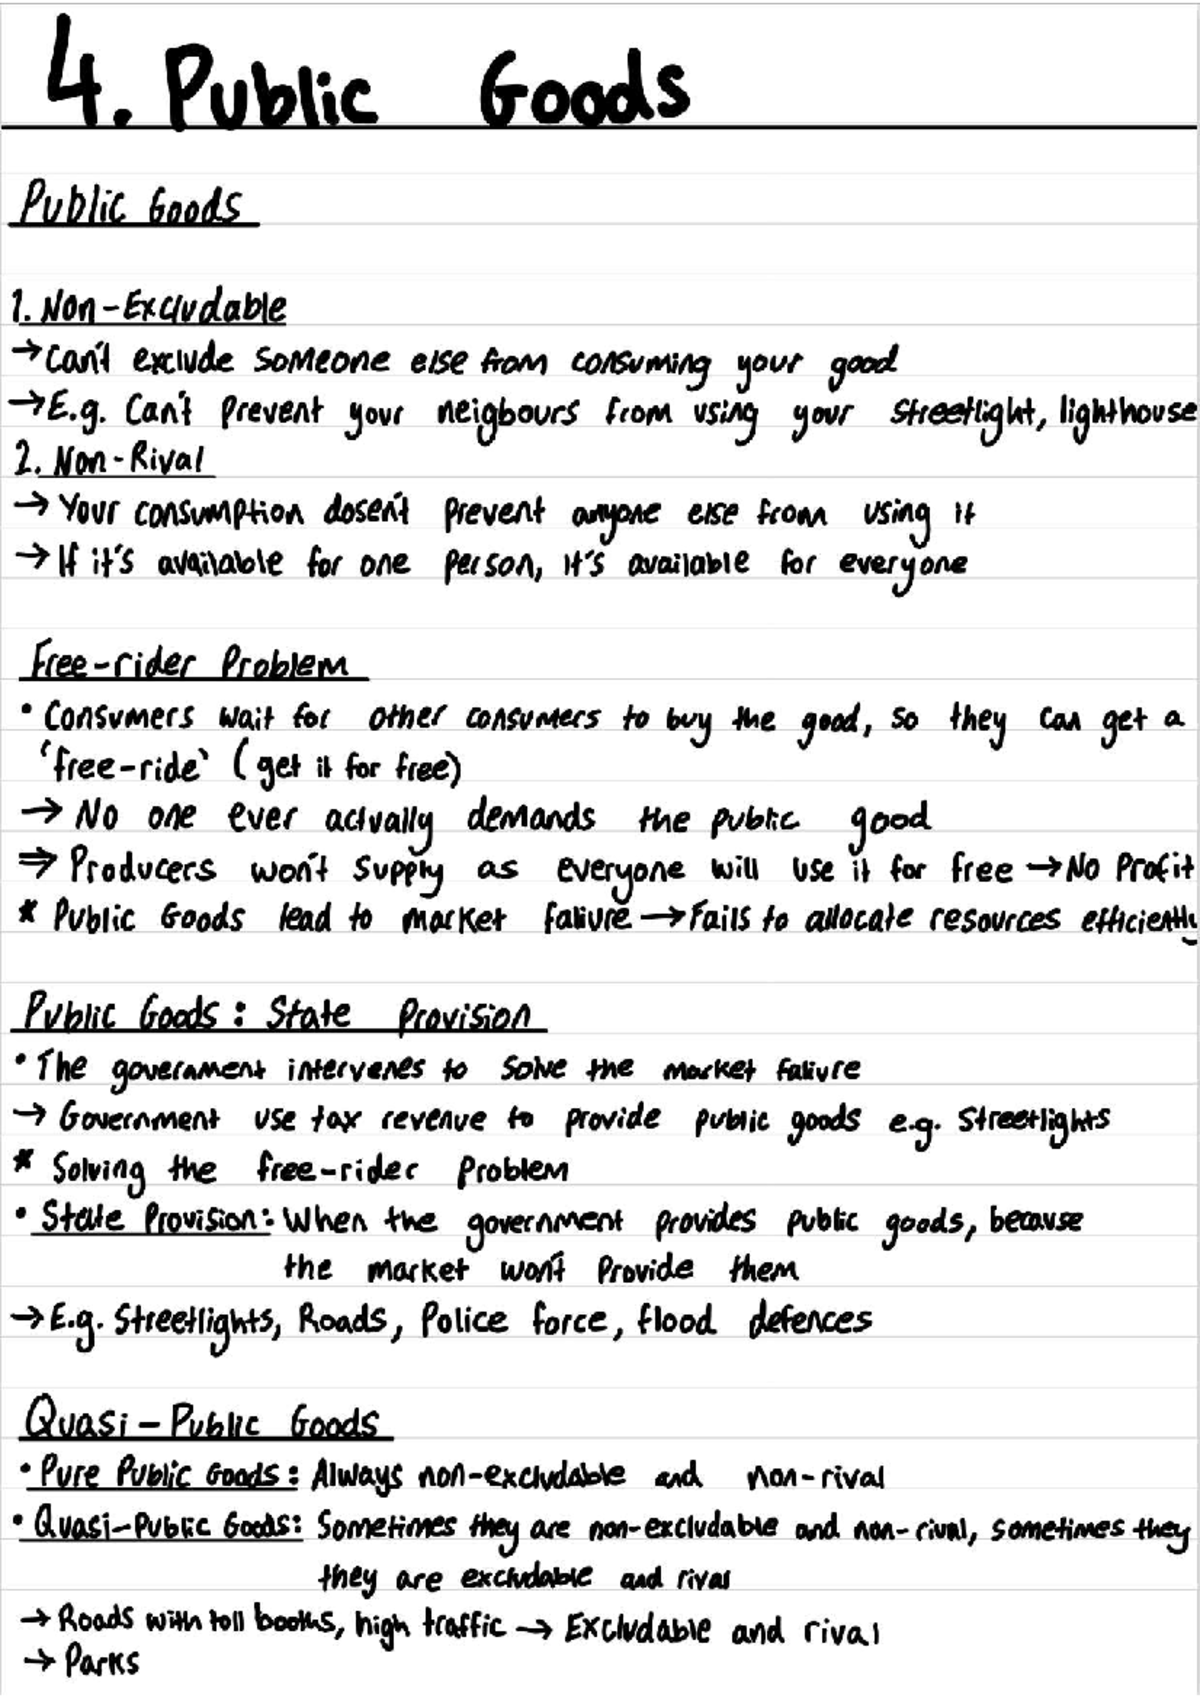 4. Public Goods
Public Goods
1. Non-Excludable
→ Can't exclude someone else from consuming your good
→ E.g. Can't prevent your neigbours from using your streetlight, lighthouse
2. Non-Rival
→ Your consumption dosen't prevent anyone else from using it
→ If it's available for one person, it's available for everyone
Free-rider Problem
• Consumers wait for other consumers to buy the good, so they can get a
'free-ride' (get it for free)
→ No one ever actually demands the public good
⇒ Producers won't supply as everyone will use it for free → No Profit
* Public Goods lead to market falivre → Fails to allocate resources efficiently
Public Goods: State Provision
• The government intervenes to solve the market falivre
→ Government use tax revenue to provide public goods e.g. Streetlights
* Solving the free-rider problem
• State Provision: When the government provides public goods, because
the market won't provide them
→ E.g. Streetlights, Roads, Police force, flood defences
Quasi-Public Goods
• Pure Public Goods: Always non-excludable and non-rival
• Quasi-Public Goods: Sometimes they are non-excludable and non-rival, sometimes they
they are excludable and rival
→ Roads with toll booths, high traffic → Excludable and rival
→ Parks